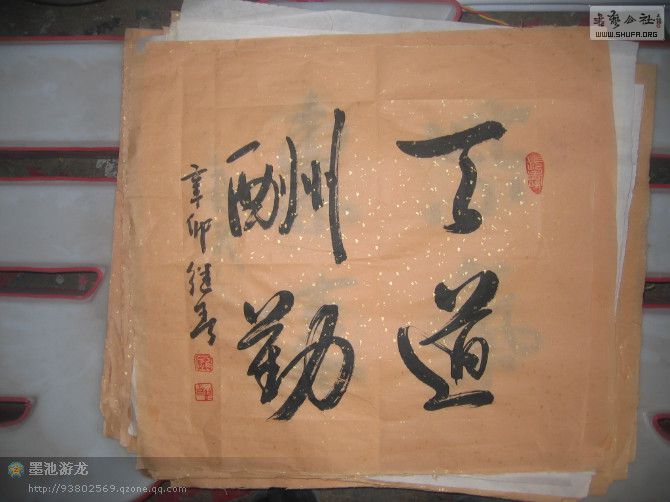 天道
酬勤
辛卯继
书艺公社
WWW.SHUFA.ORG
墨池游龙
http://93802569.qzone.qq.com